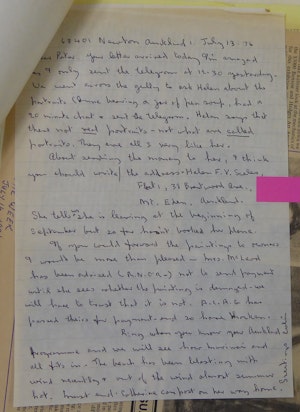 68401 Newton Auckland 1. July 13. 76
Dear Peter, your letter arrived today I'm amazed
as I only sent the telegram at 12.30 yesterday.
We went across the gully to ask Helen about the
portraits (Anne bearing a jar of pea soup, had a
20 minute chat & sent the telegram. Helen says that
these are not real portraits - not what are called
portraits. They are all very like her.
About sending the money to her, I think
you should write / the address - Helen F.V.
Flat 1, 31 Brentwood Ave,
Mt. Eden, Auckland.
She tells she is leaving at the beginning of
September but so far hasn't booked her plane.
If you could forward the paintings to owners
I would be more than pleased - Mrs. McLeod
has been advised (A.N.C.R.) not to send payment
until she sees whether the painting is damaged - we
will have to trust that it is not. A.C.A.G. has
passed theirs for payment - and so home
Ring when you know your Auckland
programme and we will see how
all fits in. The beach has been blasting with
wind recently & out of the wind almost summer
hot. and Catherine can post on her way home.
Greetings Colin